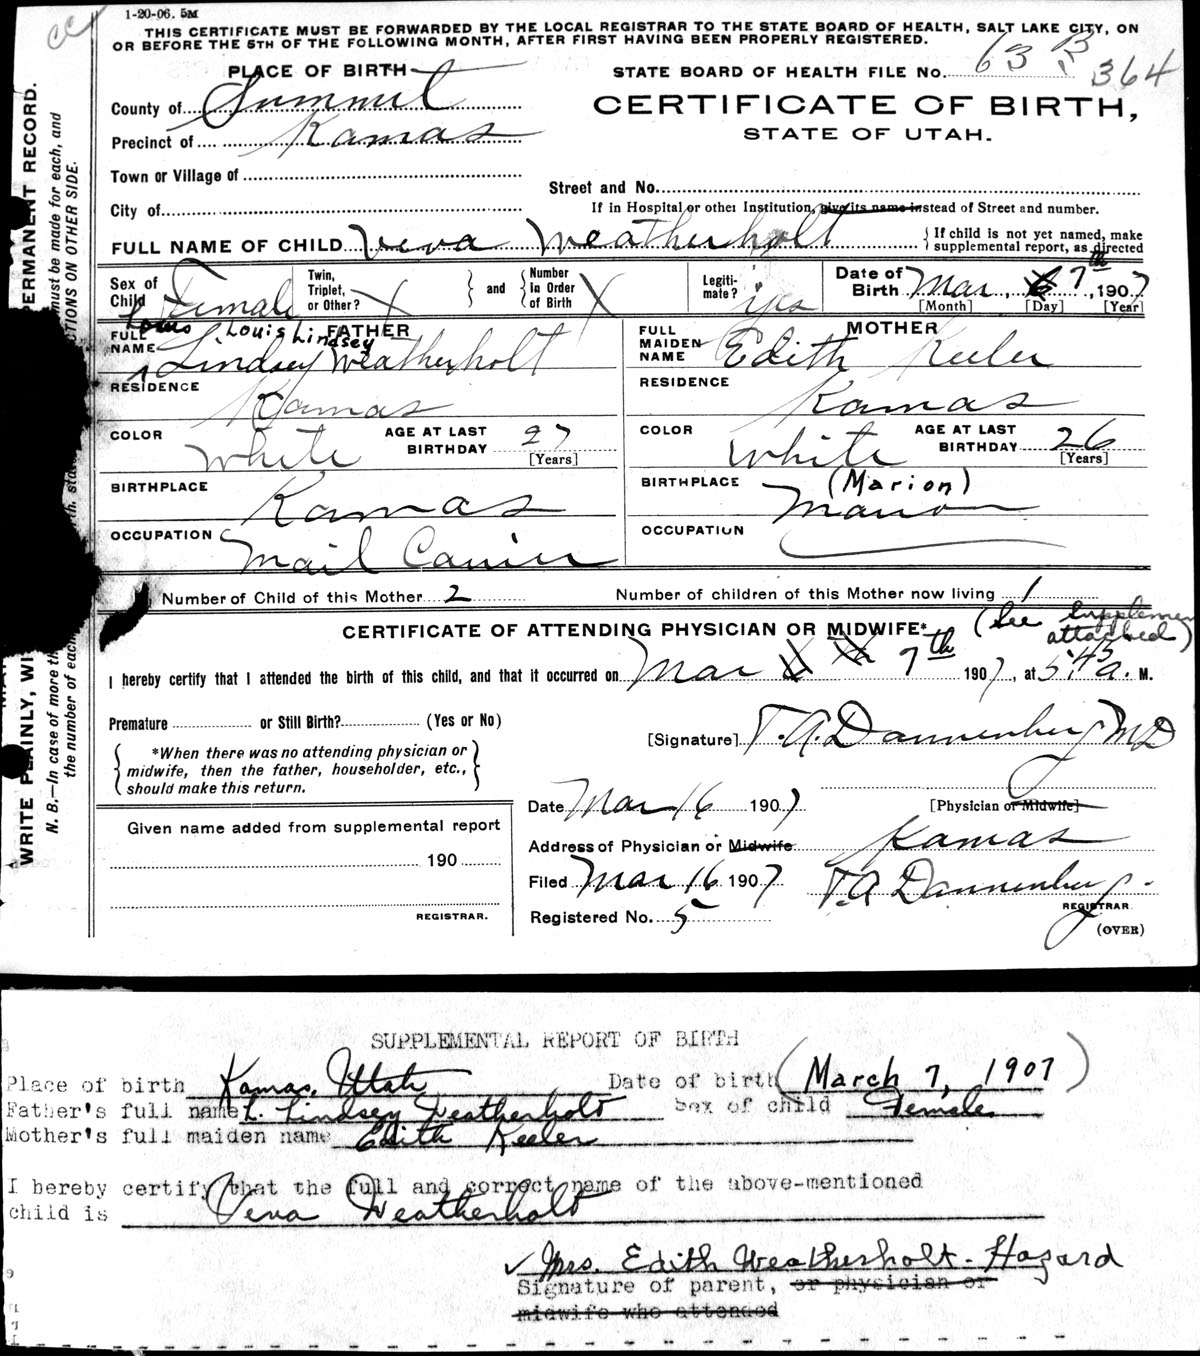 1-20-06. 5M
THIS CERTIFICATE MUST BE FORWARDED BY THE LOCAL REGISTRAR TO THE STATE BOARD OF HEALTH, SALT LAKE CITY, ON
OR BEFORE THE 5TH OF THE FOLLOWING MONTH, AFTER FIRST HAVING BEEN PROPERLY REGISTERED.
PLACE OF BIRTH
STATE BOARD OF HEALTH FILE No. 63 364
County of Summit
CERTIFICATE OF BIRTH,
Precinct of Kamas
STATE OF UTAH.
Town or Village of
Street and No.
City of
If in Hospital or other Institution, give its name instead of Street and number.
FULL NAME OF CHILD Veva Weatherholt
If child is not yet named, make
supplemental report, as directed
Sex of Child Female
Twin, Triplet, or Other? X
and
Number in Order of Birth X
Legiti-mate? yes
Date of Birth Mar. 7th, 1907
[Month] [Day] [Year]
FATHER
Louis Louis Lindsey
FULL NAME Lindsey Weatherholt
MOTHER
FULL MAIDEN NAME Edith Keeler
RESIDENCE Kamas
RESIDENCE Kamas
COLOR White
AGE AT LAST BIRTHDAY 27 [Years]
COLOR White
AGE AT LAST BIRTHDAY 26 [Years]
BIRTHPLACE Kamas
BIRTHPLACE (Marion)
Marion
OCCUPATION Mail Carrier
OCCUPATION
Number of Child of this Mother 2
Number of children of this Mother now living 1
(See Supplement
attached)
CERTIFICATE OF ATTENDING PHYSICIAN OR MIDWIFE*
I hereby certify that I attended the birth of this child, and that it occurred on Mar 7th 1907, at 5:45 a. M.
Premature or Still Birth? (Yes or No)
[Signature] T. A. Dannenberg MD
*When there was no attending physician or
midwife, then the father, householder, etc.,
should make this return.
Date Mar 16 1907
[Physician or Midwife]
Given name added from supplemental report
Address of Physician or Midwife Kamas
190
Filed Mar 16 1907 T. A Dannenberg
REGISTRAR
REGISTRAR.
Registered No. 5
(OVER)
WRITE PLAINLY, PERMANENT RECORD.
N. B.—In case of more must be made for each, and
the number of each ON OTHER SIDE.
SUPPLEMENTAL REPORT OF BIRTH
Place of birth Kamas, Utah Date of birth (March 7, 1907)
Father's full name L. Lindsey Weatherholt Sex of child Female
Mother's full maiden name Edith Keeler
I hereby certify that the full and correct name of the above-mentioned
child is Veva Weatherholt
Mrs. Edith Weatherholt-Hazard
Signature of parent, or physician or
midwife who attended